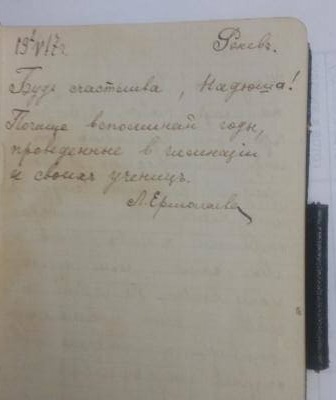 19 1/V 17 г. Ржевъ.
Будь счастлива, Надюша!
Почаще вспоминай годы,
проведенные в гимназiи
и своихъ ученицъ.
Л. Ермолаева